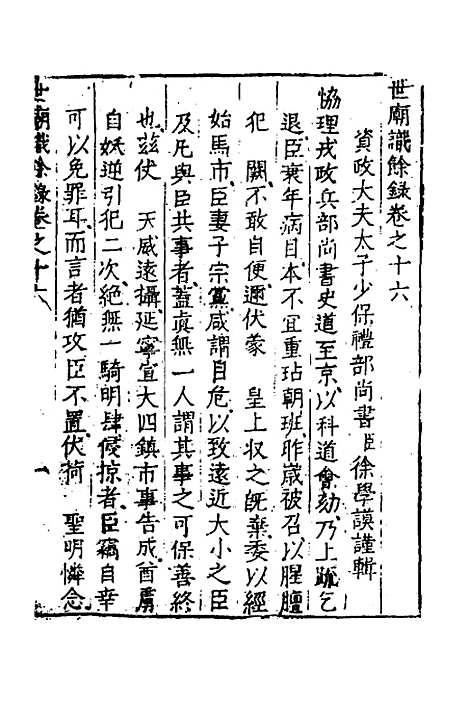 世廟識餘錄卷之十六
資政大夫太子少保禮部尚書臣徐學謨謹輯
協理戎政兵部尚書史道至京以科道會劾乃上疏乞
退臣衰年病目本不宜重玷朝班昨歲被召以腥膻
犯 闕不敢自便邇伏蒙 皇上収之旣棄委以經
始馬市臣妻子宗黨咸謂自危以致遠近大小之臣
及凡與臣共事者蓋眞無一人謂其事之可保善終
也玆仗 天威遠攝延寧宣大四鎮市事告成酋虜
自妖逆引犯二次絶無一騎明肆侵掠者臣竊自幸
可以免罪耳而言者猶攻臣不置伏荷 聖明憐念
世廟識餘錄卷之十六
一